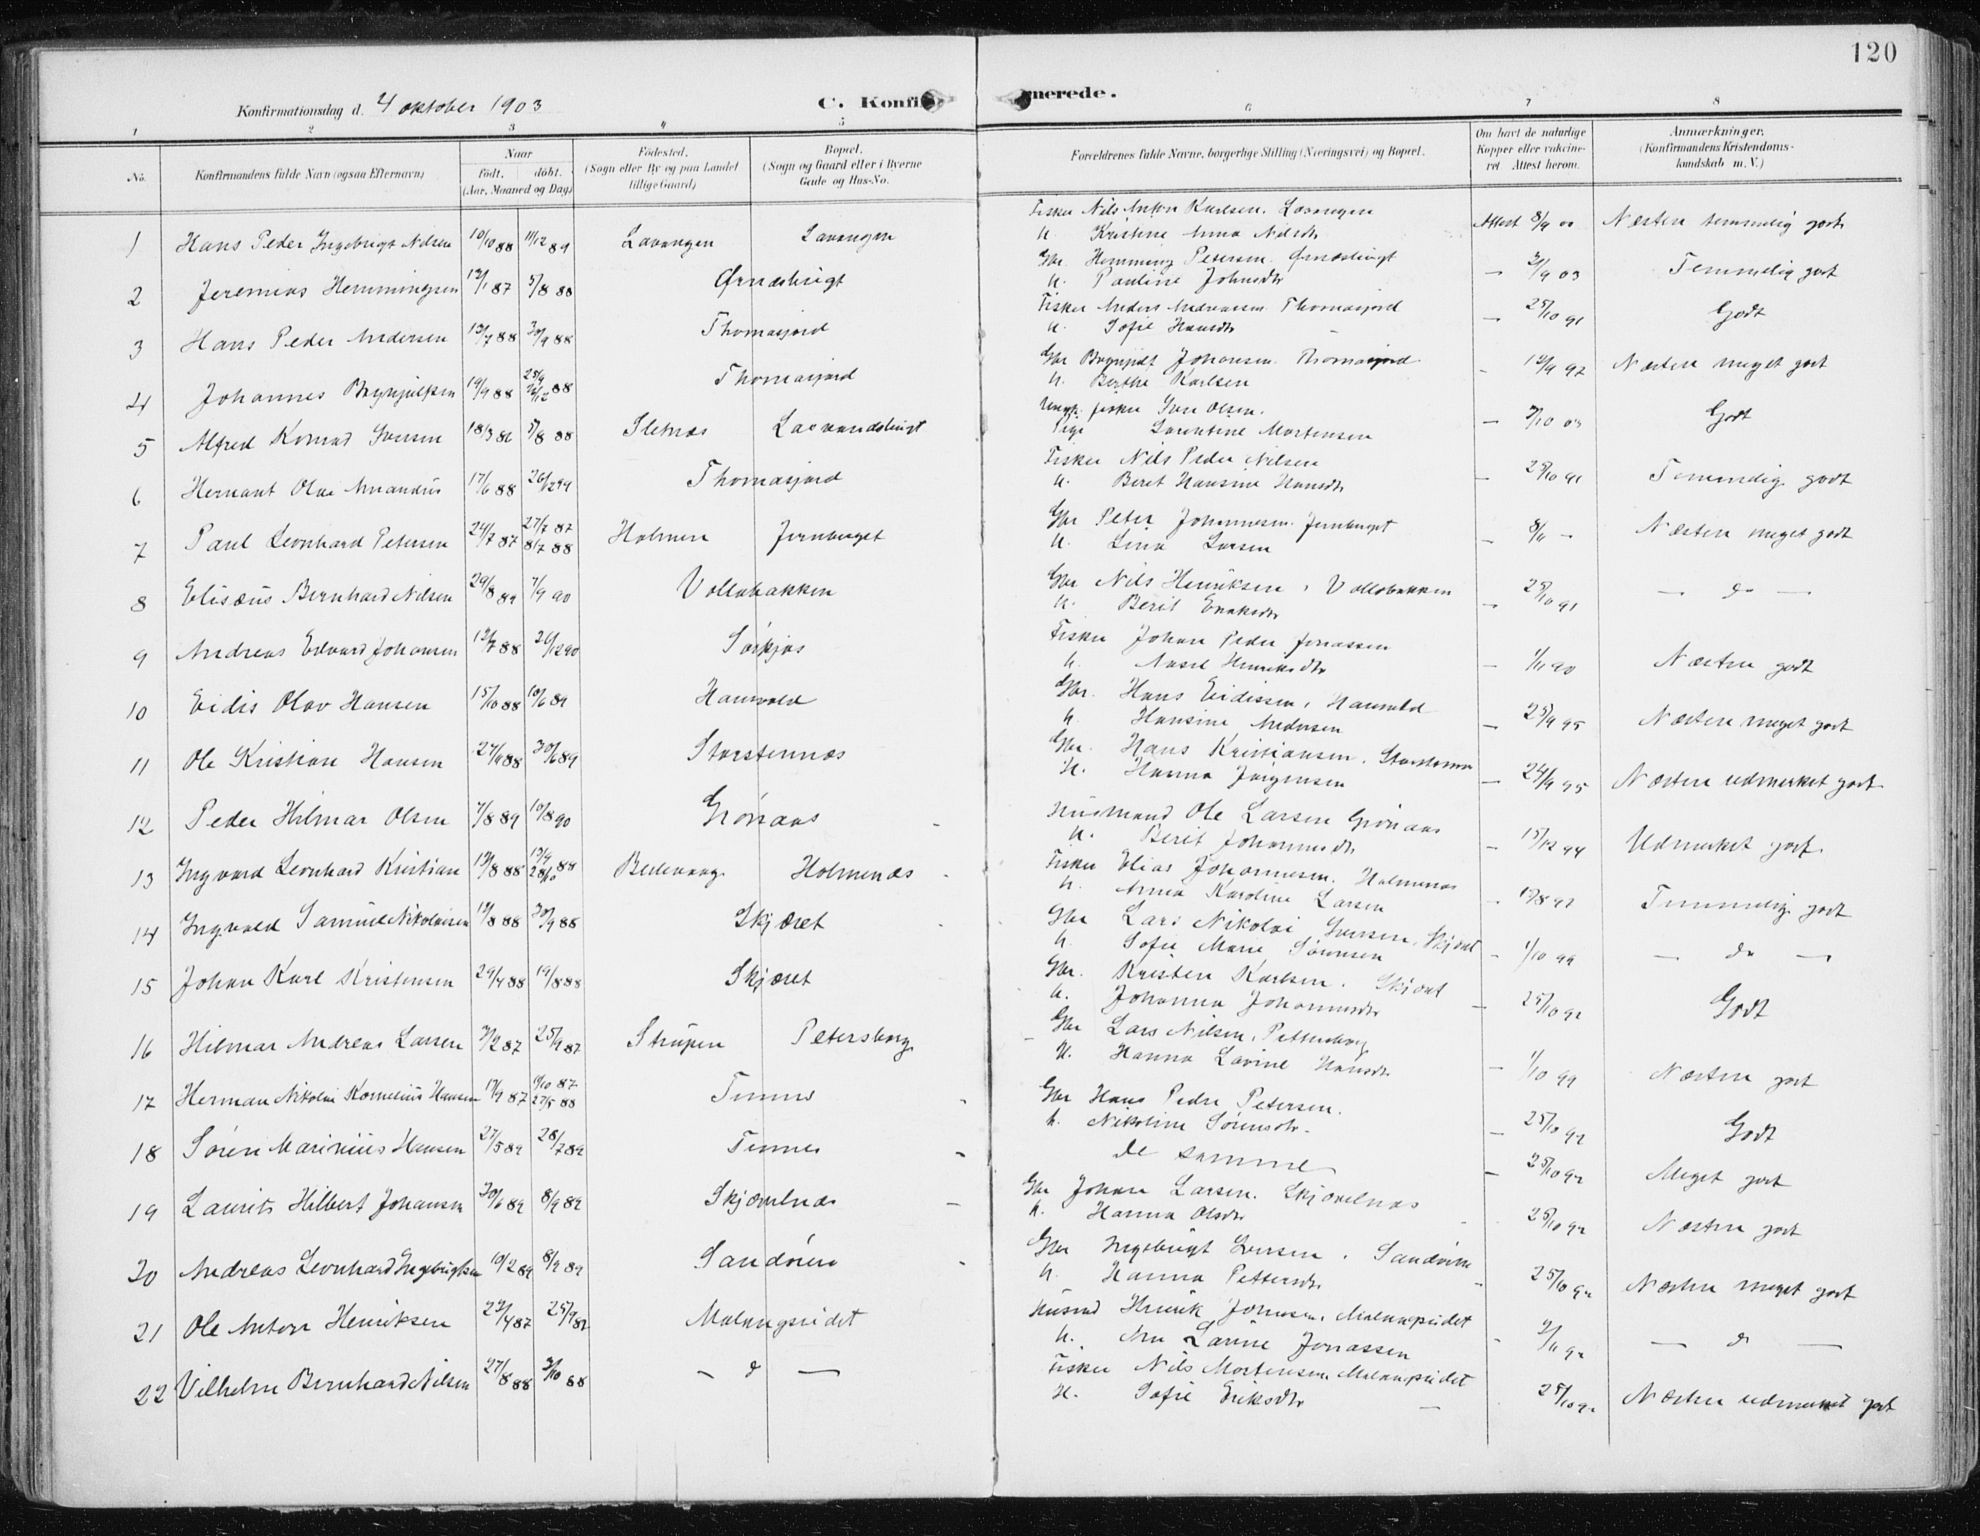 120
Konfirmationsdag d. 4 oktober 1903
C. Konfirmerede.
1 2 3 4 5 6 7 8
No. Konfirmandens fulde Navn (ogsaa Efternavn) Naar født. døbt. (Aar, Maaned og Dag) Fødested. (Sogn eller By og paa Landet tillige Gaard) Bopæl. (Sogn og Gaard eller i Byerne Gade og Hus-No. Forældrenes fulde Navne, borgerlige Stilling (Næringsvei) og Bopæl. Om havt de naturlige Kopper eller vaccineret Attest herom. Anmærkninger. (Konfirmandens Kristendomskundskab m. V.)
1 Hans Peder Ingebrigt Nilsen 10/10 88 11/12 89 Lavangen Lavangen Fisker Nils Anton Karlsen. Lavangen Attest 8/9 00 Næsten temmelig godt
h. Kristine Anna Nilsdtr
2 Jeremias Hemmingsen 12/1 87 5/8 88 Ørnæsbugt Gbr. Hemming Petersen Ørnæsbugt — 2/9 03 Temmelig godt
h. Pauline Johnsdtr
3 Hans Peder Andersen 13/7 88 30/9 88 Thomasjord Fisker Anders Andreassen Thomasjord — 25/10 91 Godt
h. Sofie Hansdtr
4 Johannes Brynjulfsen 19/9 88 Thomasjord Gbr Brynjulf Johansen Thomasjord - 12/9 92 Næsten meget godt
h. Berthe Karlsen
5 Alfred Konrad Iversen 18/3 86 5/8 88 Sletnæs Lavandsbugt Ungk. fisker Iver Olsen. — 3/10 03 Godt
Pige Lorentine Mortensen
6 Hernant Olai Amandus 17/6 88 Thomasjord Fisker Nils Peder Nilsen — 25/10 91 Temmelig godt
h. Beret Hansine Hansdtr
7 Paul Leonhard Petersen 24/7 87 27/7 87 8/7 88 Holmen Jernberget Gbr Peter Johannesen Jernberget — 8/11 — Næsten meget godt
h. Lina Larsen
8 Elisæus Bernhard Nilsen 29/8 89 7/9 90 Vollabakken Gbr Nils Henriksen, Vollabakken — 25/10 91 — do —
h. Berit Eraksdtr
9 Andreas Edvard Johansen 12/7 88 26/12 90 Sørkjos Fisker Johan Peder Jonassen — 1/11 90 Næsten godt
h. Aasel Henriksdtr
10 Eidis Olav Hansen 15/10 88 10/6 89 Haunvold Gbr. Hans Eidissen, Haunvold — 25/9 95 Næsten meget godt
h. Hansine Andersen
11 Ole Kristian Hansen 27/9 88 30/6 89 Storstennæs Gbr. Hans Kristiansen. Storstennæs — 24/9 95 Næsten udmerket godt
h. Hanna Jørgensen
12 Peder Hilmar Olsen 7/8 89 10/8 90 Grønaas Husmand Ole Larsen Grønaas — 15/12 94 Udmerket godt
h. Berit Johannesdtr
13 Ingvard Leonhard Kristian 13/8 88 Bedevaag Holmenæs Fisker Elias Johannesen. Holmenæs - Temmelig godt
h. Anna Karoline Larsen
14 Ingvald Samuel Nikolaisen 12/8 88 30/9 88 Skjæret Gbr Lars Nikolai Iversen, Skjæret - 1/10 99 — do —
h. Sofie Marie Sørensen
15 Johan Karl Kristensen 29/4 88 19/8 88 Skjæret Gbr. Kristen Karlsen. Skjæret — 25/10 92 Godt
h. Johanna Johannesdtr
16 Hilmar Andreas Larsen 3/2 87 25/9 87 Strupen Petersborg Gbr Lars Nilsen, Pettersborg — 1/10 99 Næsten godt
h. Hanna Lovine Hansdtr
17 Herman Nikolai Kornelius Hansen 17/9 87 27/5 88 Tennes Gbr Hans Peder Petersen. — 25/10 92 Godt
h. Nikoline Sørensdtr
18 Søren Marinius Hansen 27/5 89 28/7 89 Tennes de samme — 25/10 92 Meget godt
19 Laurits Hilbert Johansen 30/6 89 8/9 89 Skjævelnæs Gbr Johan Larsen. Skjævelnæs 25/10 92 Næsten godt
h. Hanna Olsdtr
20 Andreas Leonhard Ingebrigtsen 10/2 89 8/9 89 Sandøren Gbr Ingebrigt Iversen. Sandøren - 25/10 92 Næsten meget godt
h. Hanna Pettersdtr
21 Ole Anton Henriksen 22/4 87 25/9 87 Malangseidet Husmd Henrik Johnsen, Malangseidet - 2/11 92 — do —
h. Ane Lavine Jonassen
22 Vilhelm Bernhard Nilsen 27/8 88 3/10 88 — do — Fisker Nils Mortensen, Malangseidet 25/10 92 Næsten udmerket godt
h. Sofie Eriksdtr